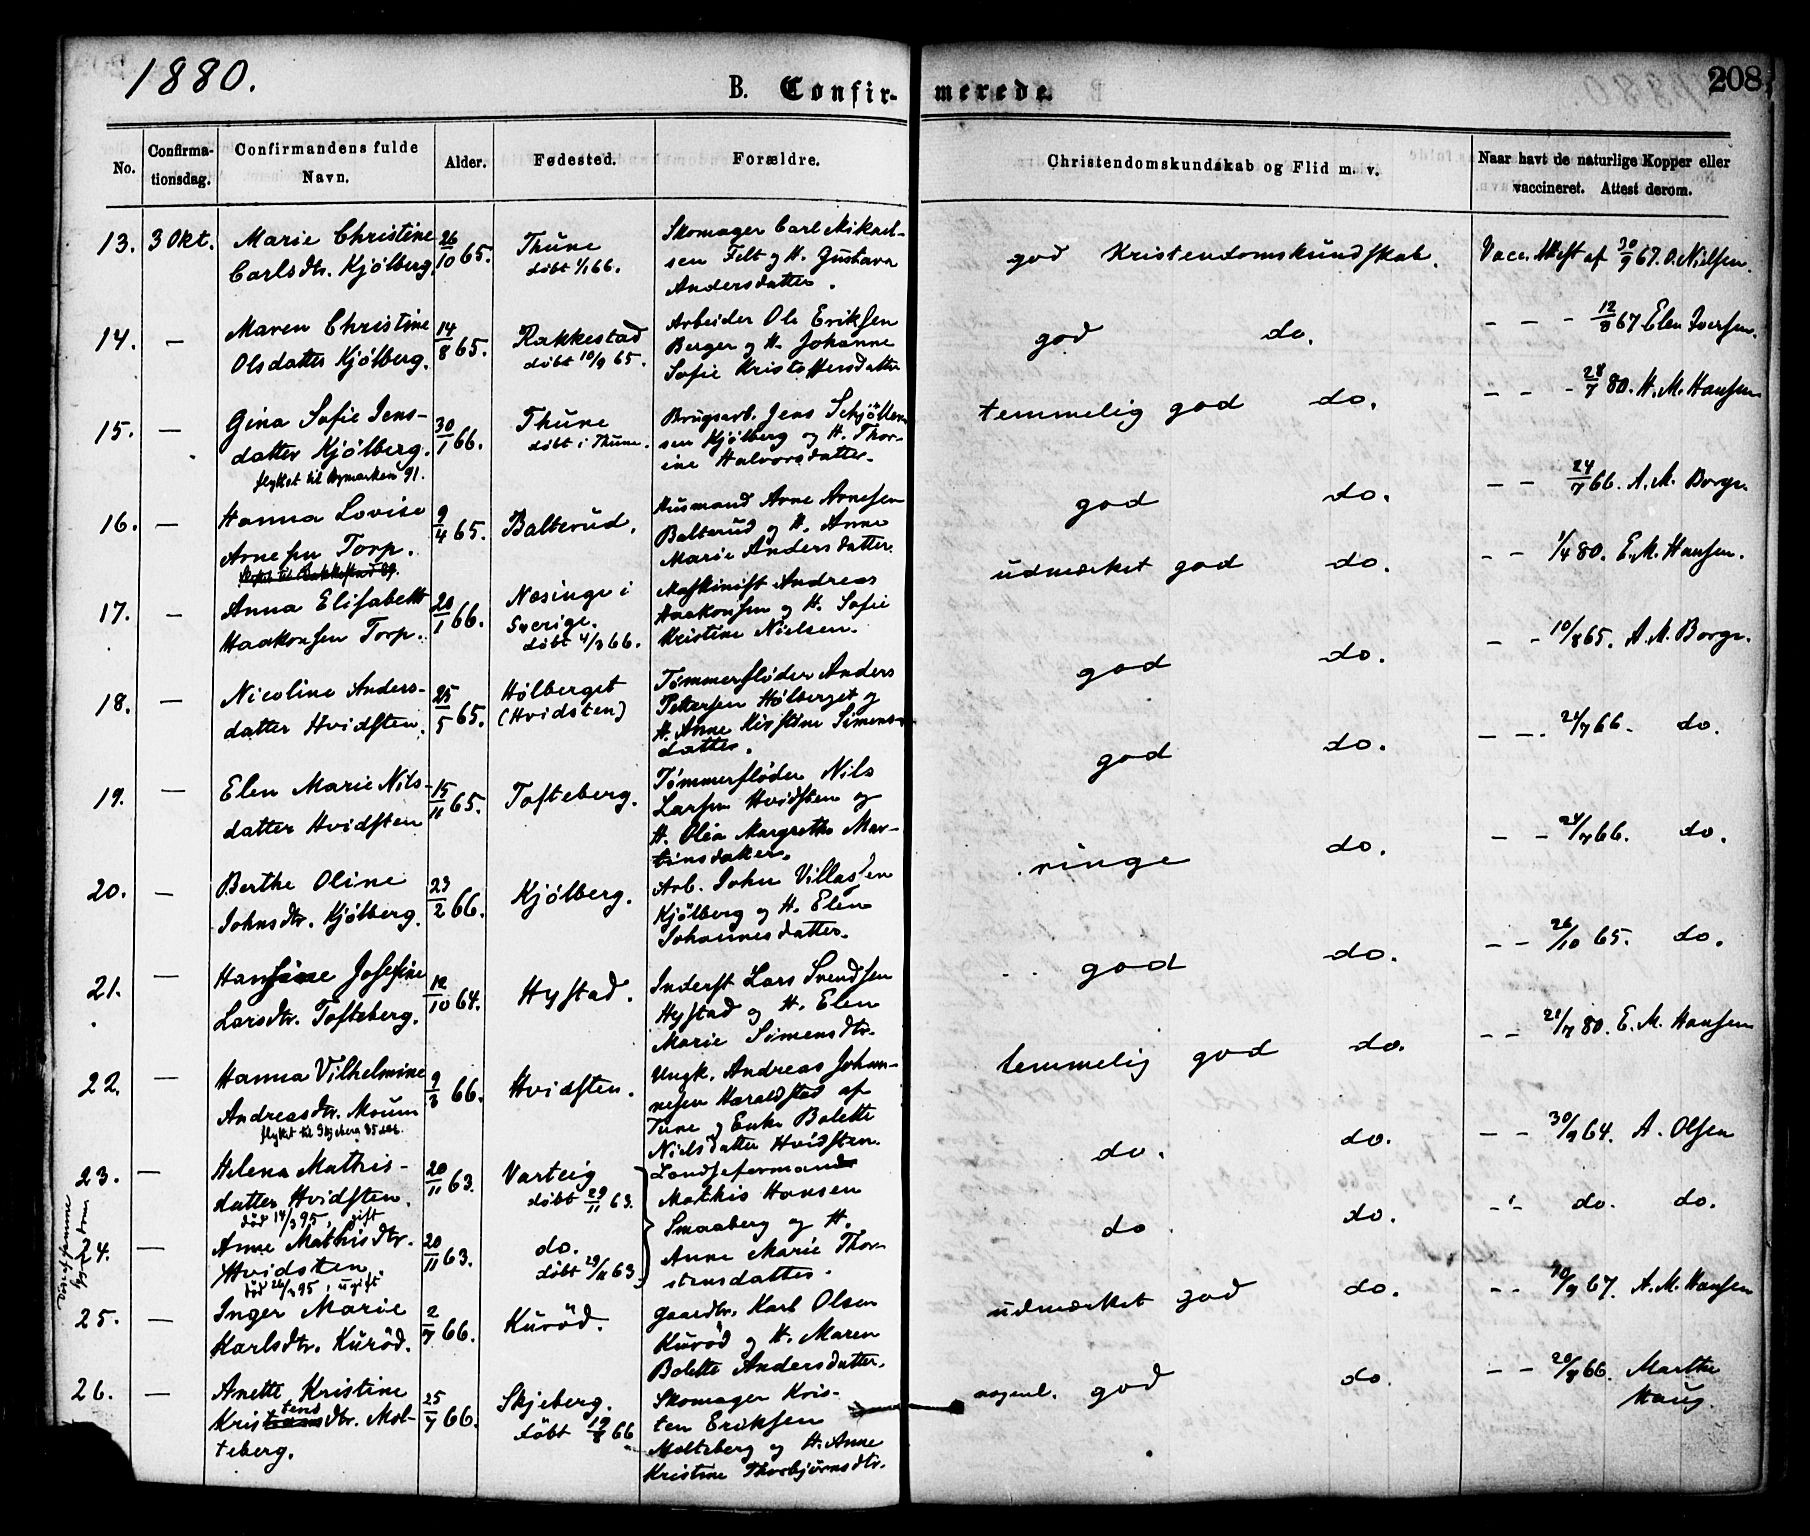 1880.
B. Confir- merede.
208
No.
Confirma-
tionsdag.
Confirmandens fulde
Navn.
Alder.
Fødested.
Forældre.
Christendomskundskab og Flid m. v.
Naar havt de naturlige Kopper eller
vaccineret. Attest derom.
13. 3 Okt. Marie Christine
Carlsdtr. Kjølberg.
26/10 65.
Thune
døbt 1/1 66.
Skomager Carl Mikael-
sen Felt og H. Gustava
Andersdatter.
god Kristendomskundskab.
Vacc. Attest af 30/9 67. O. Nielsen.
14. — Maren Christine
Olsdatter Kjølberg.
14/8 65.
Rakkestad
døbt 10/9 65.
Arbeider Ole Eriksen
Berger og H. Johanne
Sofie Kristoffersdatter
god do.
— — — 12/8 67 Elen Iversen.
15. — Gina Sofie Jens-
datter Kjølberg.
flyttet til Bymarken 91.
30/1 66.
Thune
døbt i Thune.
Brugsarb. Jens Schjølten-
sen Kjølberg og H. Thor-
ine Halvorsdatter.
temmelig god do.
— — — 28/7 80. H. M. Hansen
16. — Hanna Lovise
Arnesen Torp.
9/4 65.
Balterud.
Husmand Arne Arnesen
Balterud og H. Anne
Marie Andersdatter.
god do.
— — 24/7 66. A. M. Borge.
17. — Anna Elisabeth
Haakonsen Torp.
20/1 66.
Næsinge i
Sverige.
døbt 4/3 66.
Maskinist Andreas
Haakonsen og H. Sofie
Kristine Nielsen.
udmærket god do.
— — 1/4 80. E. M. Hansen.
18. — Nicoline Anders-
datter Hvidsten.
25/5 65.
Hølberget
(Hvidsten)
Tømmerfløder Anders
Pettersen Hølberget og
H. Anne Kirstine Simens-
datter.
god do.
— — 10/8 65. A. M. Borge.
19. — Elen Marie Nils-
datter Hvidsten
15/11 65.
Tofteberg.
Tømmerfløder Nils
Larsen Hvidsten og
H. Olea Margrethe Mar-
tinsdatter.
god do.
— — 24/7 66. do.
20. — Berthe Oline
Johnsdtr. Kjølberg.
23/2 66.
Kjølberg.
Arb. John Villassen
Kjølberg og H. Elen
Johannesdatter.
ringe do.
— — 24/7 66. do.
21. — Hansine Josefine
Larsdtr. Tofteberg.
12/10 64.
Hystad.
Inderst Lars Svendsen
Hystad og H. Elen
Marie Simensdtr.
god do.
— — 26/10 65. do.
22. — Hanna Vilhelmine
Andreasdtr. Moum
flyttet til Skjeberg 85
9/3 66.
Hvidsten.
Ungk. Andreas Johan-
nesen Haraldstad af
Tune og Enke Bolette
Nielsdatter Hvidsten
temmelig god do.
— — 21/7 80. E. M. Hansen
23. — Helena Mathis-
datter Hvidsten.
død 14/3 95, gift
20/11 63.
Varteig
døbt 29/11 63.
Landhefermand
Mathis Hansen
Smaaberg og H.
Anne Marie Thor-
stensdatter.
do. do.
— — 30/9 64. A. Olsen
24. — Anne Mathisdtr.
Hvidsten.
død 26/3 95, ugift
20/11 63.
do.
døbt 29/11 63.
do do.
— — do. do.
25. — Inger Marie
Karlsdtr. Kurød.
2/7 66.
Kurød.
Gaardbr. Karl Olsen
Kurød og H. Maren
Bolette Andersdatter.
udmærket god do.
— — 30/9 67. A. M. Hansen
26. — Anette Kristine
Kristensdtr. Mol-
teberg.
25/7 66.
Skjeberg.
døbt 19/8 66
Skomager Kris-
ten Eriksen
Molteberg og H. Anne
Kristine Thorbjørnsdtr.
nogenl. god do.
— — 20/8 66. Marthe
Haug.